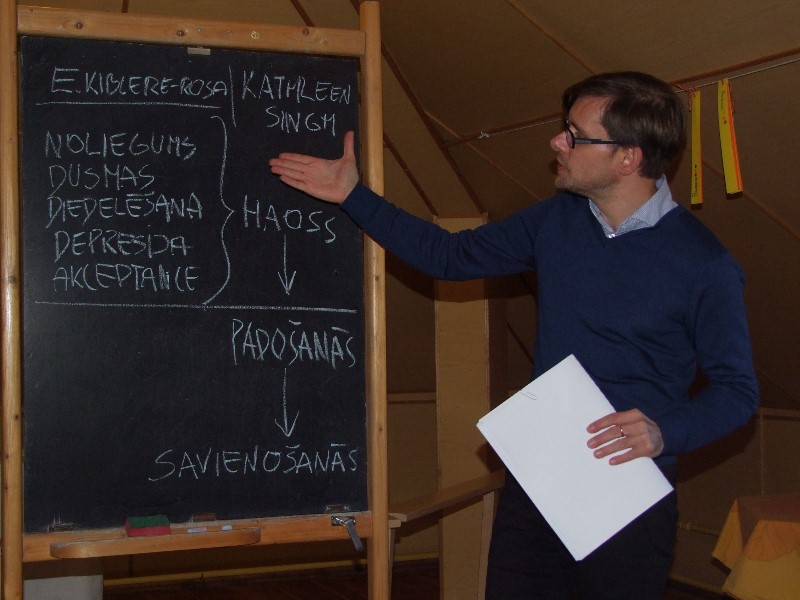 E. KIBLERE-ROSA
NOLIEGUMS
DUSMAS
DIEDELĒŠANA
DEPRESIJA
AKCEPTANCE
KATHLEEN
SINGH
HAOSS
PADOŠANĀS
SAVIENOŠANĀS